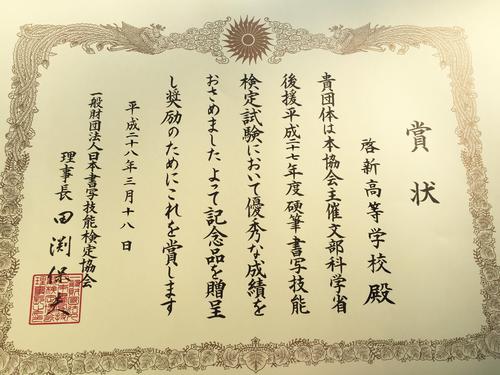 賞状
啓新高等学校殿
貴団体は本協会主催文部科学省
後援平成二十七年度硬筆書写技能
検定試験において優秀な成績を
おさめました よって記念品を贈呈
し奨励のためにこれを賞します
平成二十八年三月十八日
一般財団法人日本書写技能検定協会
理事長 田渕保夫